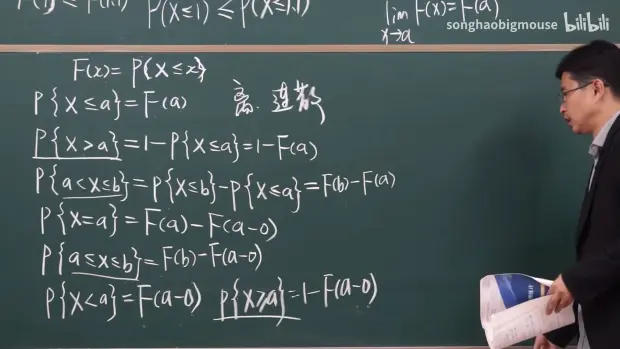 F(1) ≤ F(1.1) P(X≤1) ≤ P(X≤1.1) lim F(x)=F(a)
x→a
songhaobigmouse bilibili
F(x)=P{X≤x}
P{X≤a}=F(a) 离. 连散
P{X>a}=1-P{X≤a}=1-F(a)
P{a<X≤b}=P{X≤b}-P{X≤a}=F(b)-F(a)
P{X=a}=F(a)-F(a-0)
P{a≤X≤b}=F(b)-F(a-0)
P{X<a}=F(a-0) P{X≥a}=1-F(a-0)